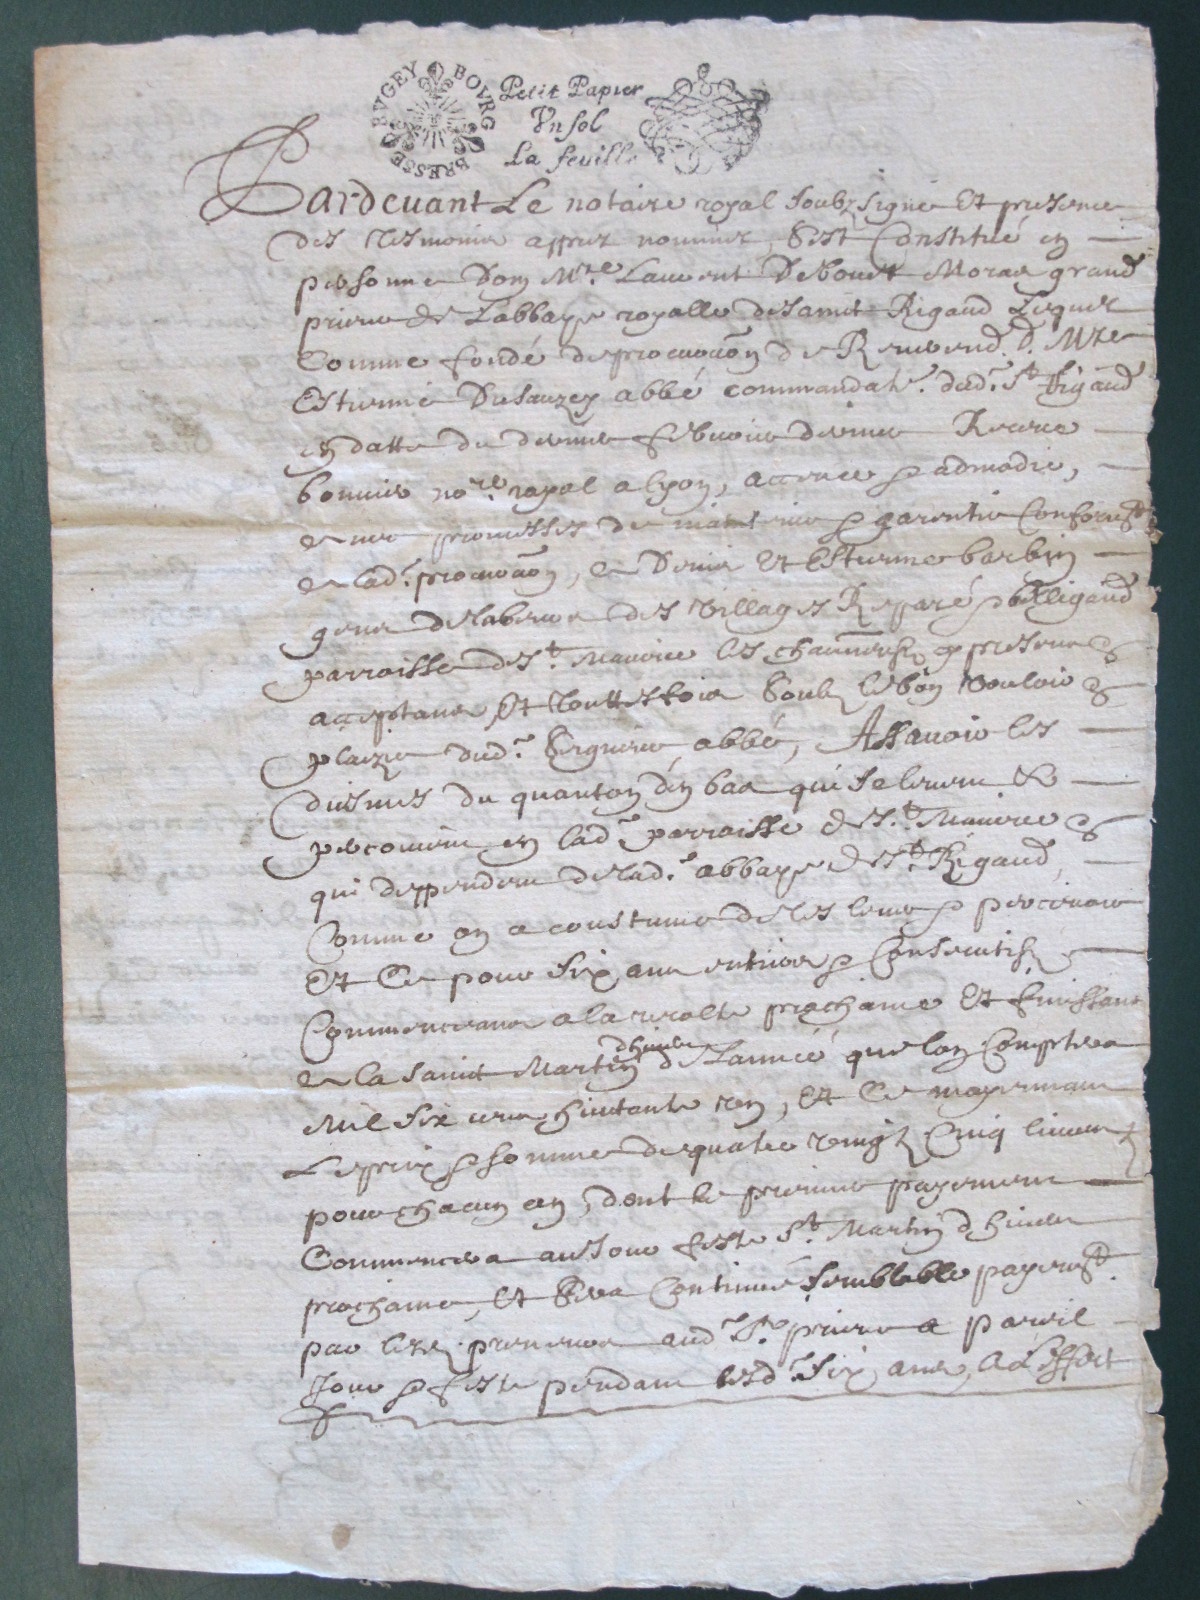 BVGEY BOVRG BRESSE
Petit Papier
Vn sol
La feuille
Pardeuant Le notaire royal soubzsigné Et presence
des tesmoins appres nommez, sest Constitué en
personne Dom Mre. Laurent Moras grand
prieur de Labbaye royalle de saint Rigaud Lequel
Comme fondé de procuraõn de Reuerend. D. Mre
Estienne Dusauzey abbé commandatr. dud. St Rigaud
en datte du dernier febvrier dernier Receue
no.re royal a lyon, accence & admodie,
auec promesses de maintenir & garentir Conformt
a lad. procuraõn, a Denis Et Estienne barbin
des villages &
parroisse de St. Maurice les presents &
acceptans, Et touttesfois soubz le bon vouloir &
plaizir dud. Seigneur abbé, Assauoir les
diesmes du quanton den bas qui se leuent &
percoiuent en lad. parroisse de St. Maurice &
qui deppendent de lad. abbaye de St. Rigaud,
Comme on a coustume de les leuer & perceuoir
Et Ce pour six ans entiers & Consecutifz
Commenceans a la recolte prochaine Et finissans
a la saint Martin dhiuer de Lannée que lon Comptera
Mil six cens huictante un, Et Ce moyennant
Le prix & somme de quatre vingtz Cinq liures
pour chacun an, dont le premier payement
Commencera au Jour feste St. Martin dhiuer
prochaine, Et sera Continué semblable payemt.
par lesd. preneurs aud. Sr. prieur a pareil
Jour & feste pendant lesd. six ans, A L'effect